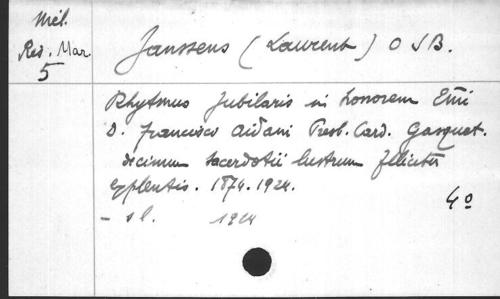 Mél.
Res. Mar.
5
Janssens (Laurent) O S B.
Rhytmus Jubilaris in honorem Emi
D. Francisco Aidani Presb. Card. Gasquet.
decimum sacerdotii lustrum feliciter
explentis. 1874.1924.
4º
- s l. 1924